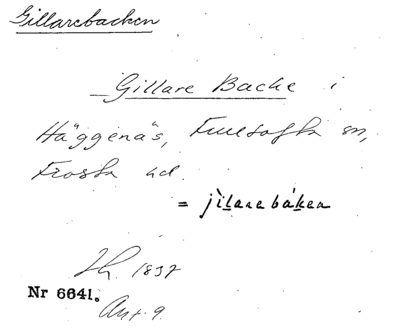 Gillarebacken
Gillare Backe i
Häggenäs, Fulltofta sn,
Frosta hd.
= jìlarebáken
1837
Nr 6641.
Ant. 9.